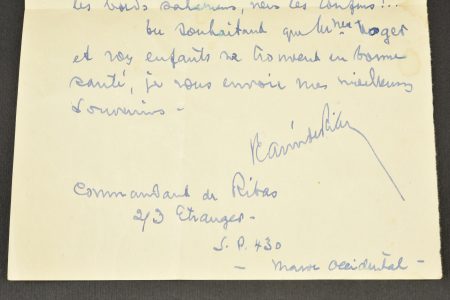 les bords sahariens, vers les confins !...
En souhaitant que Mme Roger
et vos enfants se trouvent en bonne
santé, je vous envoie mes meilleurs
souvenirs -
Commandant de Ribas
2/3 Etranger -
S.P. 430
- Maroc Occidental -